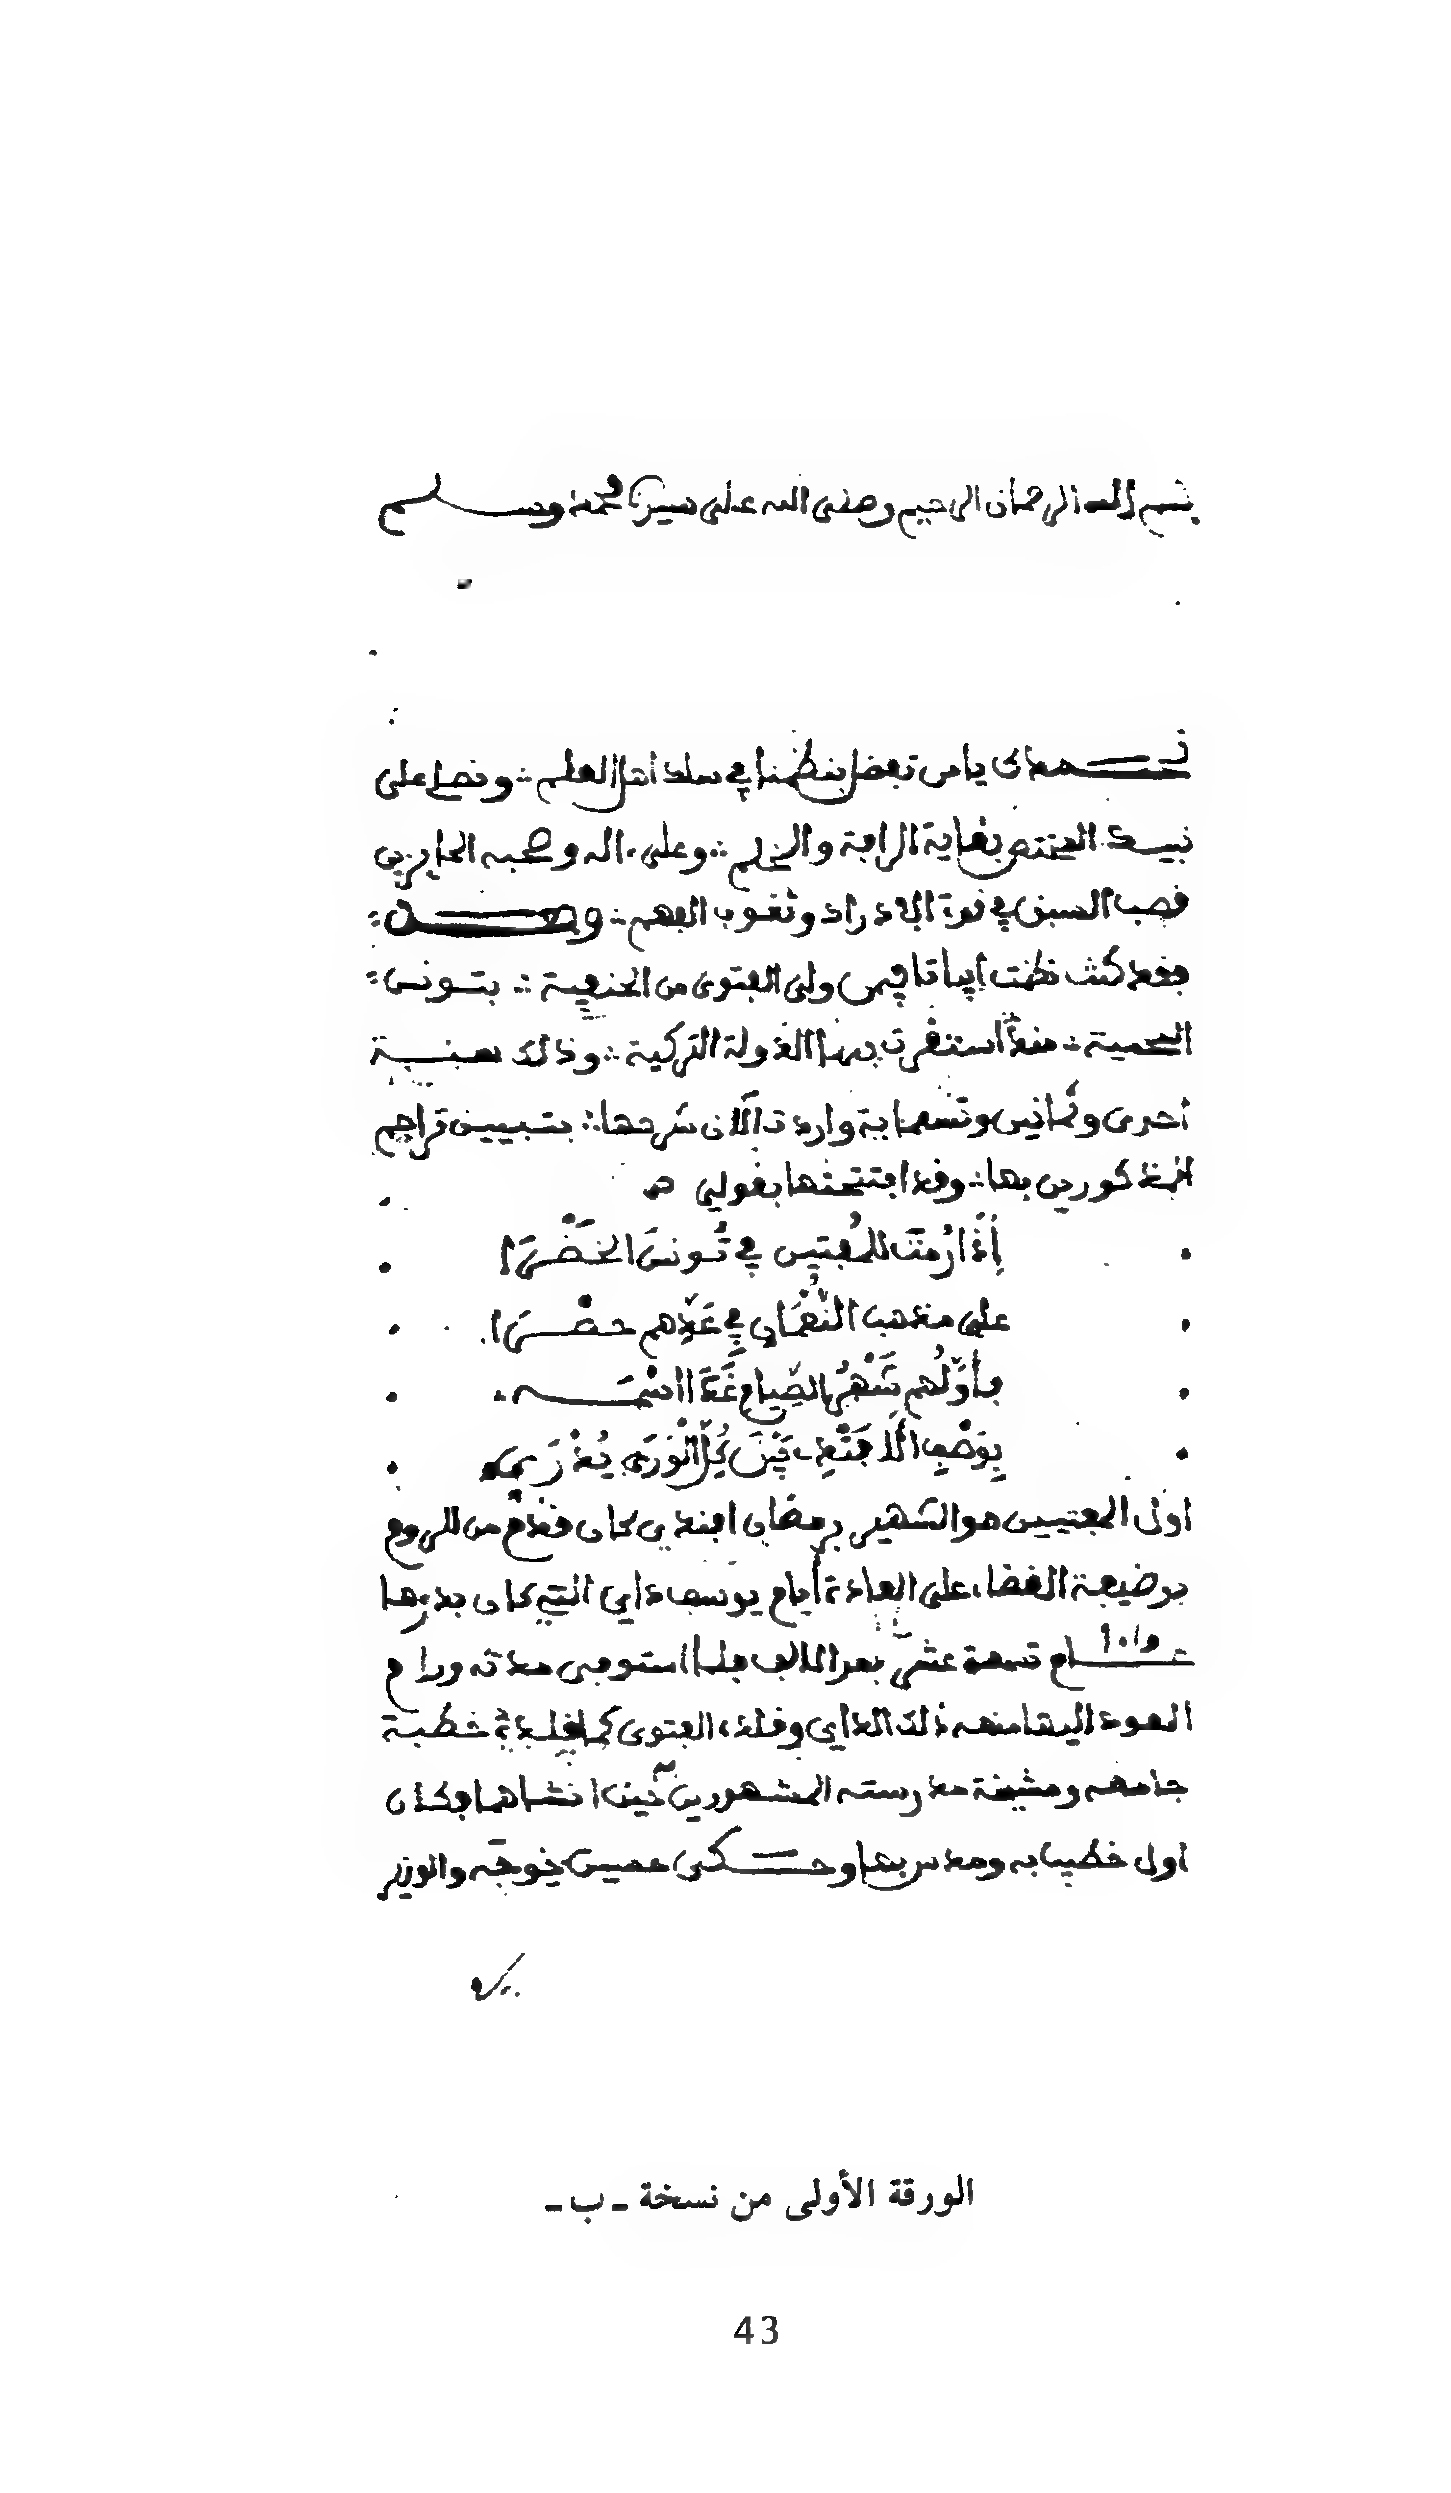 بسم الله الرحمان الرحيم وصلى الله على سيدنا محمد وسلم
نحمدك يا من تفضل بنظمنا في سلك اهل العلم ∴ ونصلي على
نبيك المختص بغاية الرافة والحلم ∴ وعلى ءاله وصحبه الحايزين
قصب السبق في قوة الادراك وثقوب الفهم ∴ وبعد
فقد كنت نظمت ابياتا فيمن ولي الفتوى من الحنفية ∴ بتونس
المحمية ∴ منذ استقرت بها الدولة التركية ∴ وذلك سنة
احدى وثمانين وتسعماية واردت الآن شرحها ∴ بتبيين تراجم
المذكورين بها ∴ وقد افتتحتها بقولي
إذا رُمتَ للمُفتين في تُونسَ الخَضْرَا
على مذهب النُّعْمَانِ في عَدِّهم حصْرَا
فأوّلُهم شَهْرُ الصِّيام غَدَا اسْمَه
بِوَصْفِ افَنْدِي بَيْنَ كُلِّ الْوَرَى يُدْرَى
اول المفتيين هو الشهير برمضان افندي كان قدم من الروم
بوظيفة القضاء على العادة أيام يوسف داي التي كان بدءها
1019
عام تسعة عشر بعد الالف فلما استوفى مدته ورام
العود اليها منعه ذلك الداي وقلده الفتوى كما قلده خطبة
جامعه ومشيخة مدرسته المشهورين حين انشاهما فكان
اول خطيب به ومدرس بها وحكى حسين خوجه والوزير
الورقة الأولى من نسخة ـ ب ـ
43